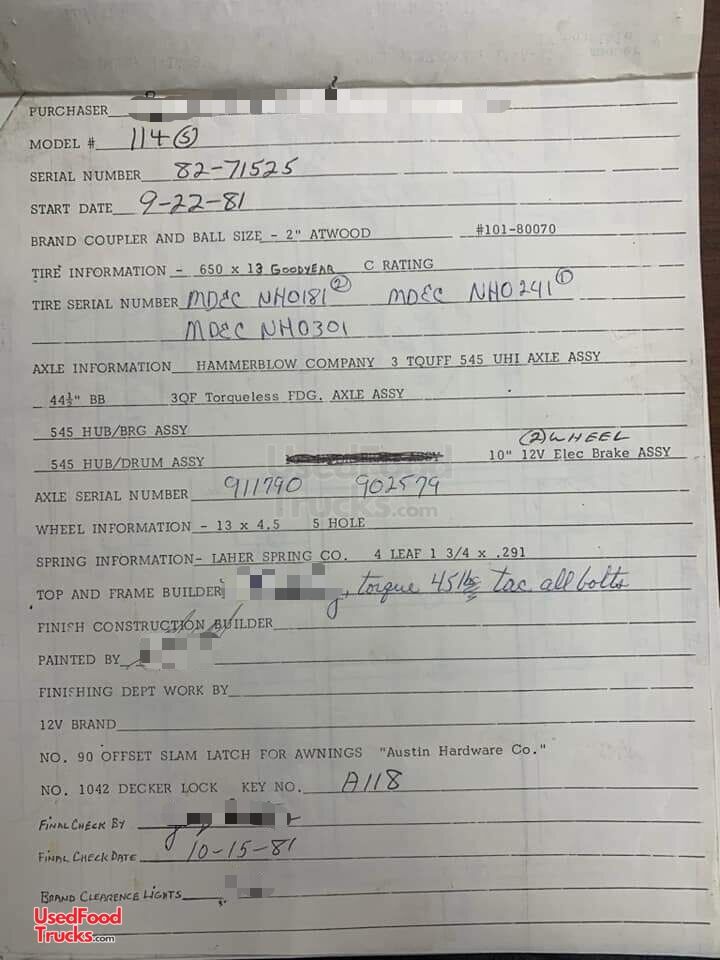 PURCHASER
MODEL # 114 (S)
SERIAL NUMBER 82-71525
START DATE 9-22-81
BRAND COUPLER AND BALL SIZE - 2" ATWOOD #101-80070
TIRE INFORMATION - 650 x 13 GOODYEAR C RATING
TIRE SERIAL NUMBER MDEC NH0181 (2) MDEC NH0241 (1)
MDEC NH0301
AXLE INFORMATION HAMMERBLOW COMPANY 3 TQUFF 545 UHI AXLE ASSY
44½" BB 3QF Torqueless FDG. AXLE ASSY
545 HUB/BRG ASSY (2) WHEEL
545 HUB/DRUM ASSY 10" 12V Elec Brake ASSY
AXLE SERIAL NUMBER 911790 902579
WHEEL INFORMATION - 13 x 4.5 5 HOLE
SPRING INFORMATION- LAHER SPRING CO. 4 LEAF 1 3/4 x .291
TOP AND FRAME BUILDER , torque 45 lbs tac all bolts
FINISH CONSTRUCTION BUILDER
PAINTED BY
FINISHING DEPT WORK BY
12V BRAND
NO. 90 OFFSET SLAM LATCH FOR AWNINGS "Austin Hardware Co."
NO. 1042 DECKER LOCK KEY NO. A118
FINAL CHECK BY
FINAL CHECK DATE 10-15-81
BRAND CLEARENCE LIGHTS
UsedFood
Trucks.com
UsedFood
Trucks.com